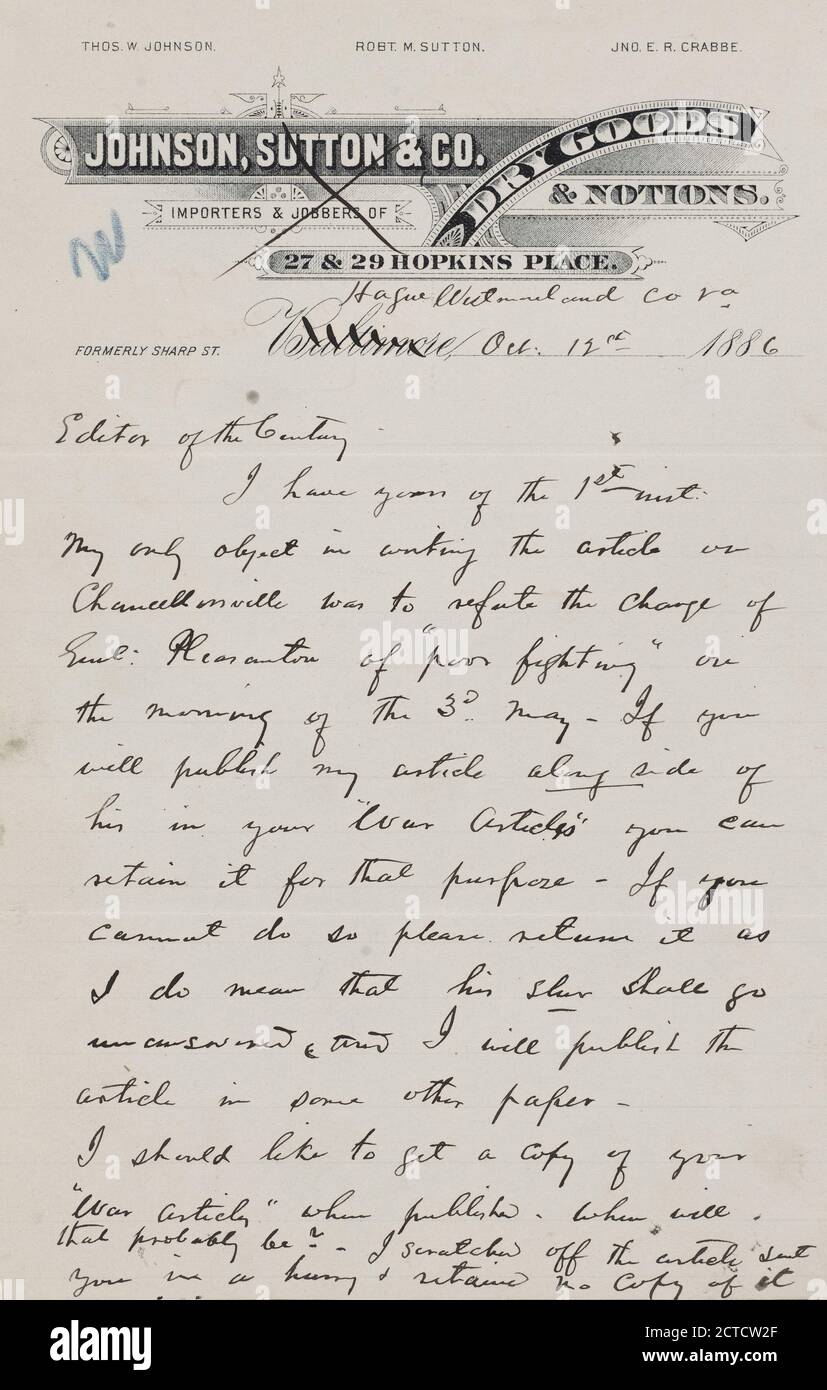 THOS. W. JOHNSON. ROBT. M. SUTTON. JNO. E. R. CRABBE.
JOHNSON, SUTTON & CO.
DRY GOODS
& NOTIONS.
IMPORTERS & JOBBERS OF
27 & 29 HOPKINS PLACE.
W
Hague Westmoreland Co Va
FORMERLY SHARP ST. Baltimore, Oct. 12 1886
Editor of the Century
I have yours of the 1st inst.
My only object in writing the article on
Chancellorsville was to refute the charge of
Genl. Pleasanton of "poor fighting" on
the morning of the 3d May - If you
will publish my article along side of
his in your "War Articles" you can
retain it for that purpose - If you
cannot do so please return it as
I do mean that his slur shall go
unanswered, & I will publish the
article in some other paper -
I should like to get a copy of your
"War articles" when published - When will
that probably be? - I scratched off the article sent
you in a hurry & retained no copy of it
alamy
alamy
alamy
alamy
alamy
alamy
alamy
Image ID: 2CTCW2F
www.alamy.com